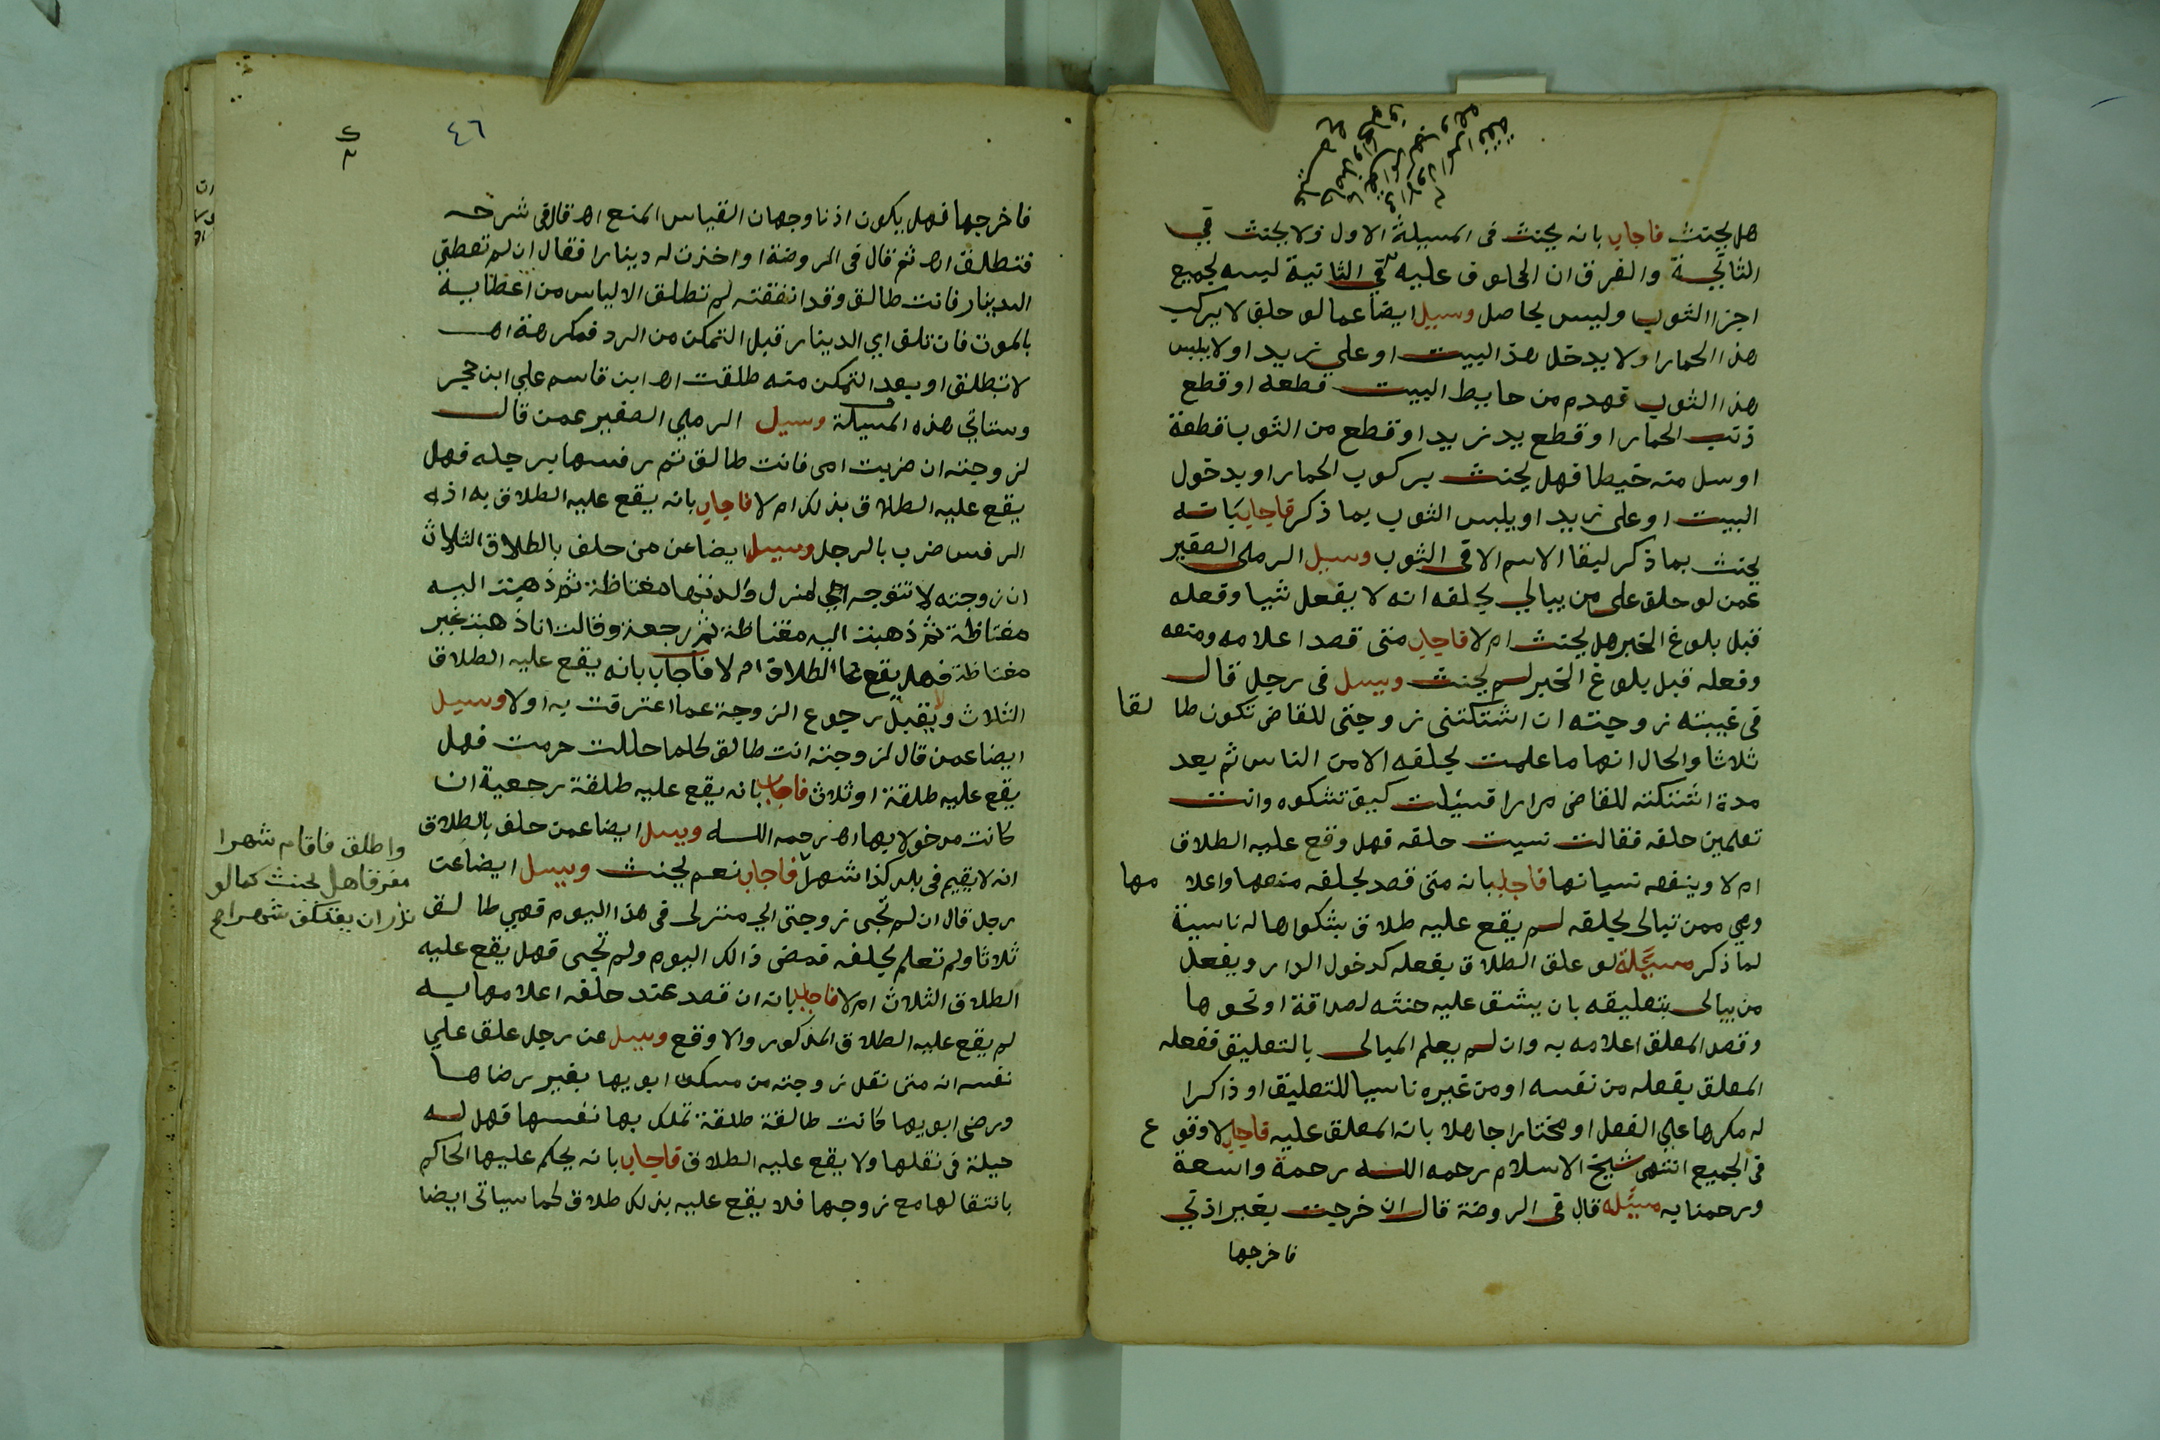 هل يحنث فاجاب بانه يحنث فى المسيلة الاول ولا يحنث فى
الثانية والفرق ان المحلوف عليه فى الثانية لبسه لجميع
اجزا الثوب وليس بحاصل وسيل ايضا عما لو حلق لا يركب
هذا الحمار او لا يدخل هذ البيت او على زيد او لا يلبس
هذا الثوب فهدم من حايط البيت قطعه او قطع
ذنب الحمار او قطع يد زيد او قطع من الثوب قطعة
او سل منه خيطا فهل يحنث بركوب الحمار او بدخول
البيت او على زيد او يلبس الثوب بما ذكر فاجاب بانه
يحنث بما ذكر لبقا الاسم الا فى الثوب وسيل الرملى الصغير
عمن لو حلق على من يبالي بحلفه انه لا يفعل شيا وفعله
قبل بلوغ الخبر هل يحنث ام لا فاجاب متى قصد اعلامه ومنعه
وفعله قبل بلوغ الخبر لم يحنث وسيل فى رجل قال
فى غيبته زوجته ان اشتكتنى زوجتى للقاضى تكون طا لقا
ثلاثا والحال انها ما علمت بحلفه الا من الناس ثم بعد
مدة اشتكته للقاضى مرارا فسيلت كيف تشكوه وانت
تعلمين حلفه فقالت نسيت حلفه فهل وقع عليه الطلاق
ام لا وينفعه نسيانها فاجاب بانه متى قصد بحلفه منعها واعلا مها
وهى ممن تبالى بحلفه لم يقع عليه طلاق بشكواها له ناسية
لما ذكر مسيلة لو علق الطلاق بفعله كدخول الدار وبفعل
من يبالى بتعليقه بان يشق عليه حنثه لصداقة او نحوها
وقصد المعلق اعلامه به وان لم يعلم المبالى بالتعليق ففعله
المعلق بفعله من نفسه او من غيره ناسيا للتعليق او ذاكرا
له مكرها على الفعل او مختارا جاهلا بانه المعلق عليه فاجاب لا وقوع
فى الجميع انتهى شيخ الاسلام رحمه الله رحمة واسعة
ورحمنا به مسيله قال فى الروضة قال ان خرجت بغير اذنى
فاخرجها
٤٦
فاخرجها فهل يكون اذنا وجهان القياس المنع اه قال فى شرحه
فتطلق اه ثم قال فى الروضة او اخذت له دينارا فقال ان لم تعطنى
الدينار فانت طالق وقد انفقته لم تطلق الا لياس من اعطايه
بالموت فان تلق اي الدينار قبل التمكن من الرد فمكرهة اه
لا تطلق او بعد التمكن منه طلقت اه ابن قاسم على ابن حجر
وستاتي هذه المسيلة وسيل الرملى الصغير عمن قال
لزوجته ان ضربت امى فانت طالق ثم رفسها برجله فهل
يقع عليه الطلاق بذلك ام لا فاجاب بانه يقع عليه الطلاق به اذ
الرفس ضرب بالرجل وسيل ايضا عن من حلف بالطلاق الثلاث
ان زوجته لا تتوجه الى منزل والدتها مغتاظة ثم ذهبت اليه
مغتاظة ثم ذهبت اليه مغتاظة ثم رجعة وقالت انا ذهبت غير
مغتاظة فهل يقع الطلاق ام لا فاجاب بانه يقع عليه الطلاق
الثلاث ولا يقبل رجوع الزوجة عما اعترفت به اولا وسيل
ايضا عمن قال لزوجته انت طالق كلما حللت حرمت فهل
يقع عليه طلقة او ثلاث فاجاب بانه يقع عليه طلقة رجعية ان
كانت مدخولا بها اه رحمه الله وسيل ايضا عمن حلف بالطلاق
انه لا يقيم فى بلد كذا شهرا فاجاب نعم يحنث وسيل ايضا عن
رجل قال ان لم تجى زوجتى الي منزلى فى هذا اليوم فهي طا لق
ثلاثا ولم تعلم بحلفه فمضى ذالك اليوم ولم تجى فهل يقع عليه
الطلاق الثلاث ام لا فاجاب بانه ان قصد عند حلفه اعلامها به
لم يقع عليه الطلاق المذكور والا وقع وسيل عن رجل علق علي
نفسه انه متى نقل زوجته من مسكن ابويها بغير رضاها
ورضى ابويها كانت طالقة طلقة تملك بها نفسها فهل له
حيلة فى نقلها ولا يقع عليه الطلاق فاجاب بانه يحكم عليها الحاكم
بانتقالها مع زوجها فلا يقع عليه بذلك طلاق كما سياتى ايضا
واطلق فاقام شهرا
مفرقا هل يحنث كما لو
نذر ان يعتكف شهرا